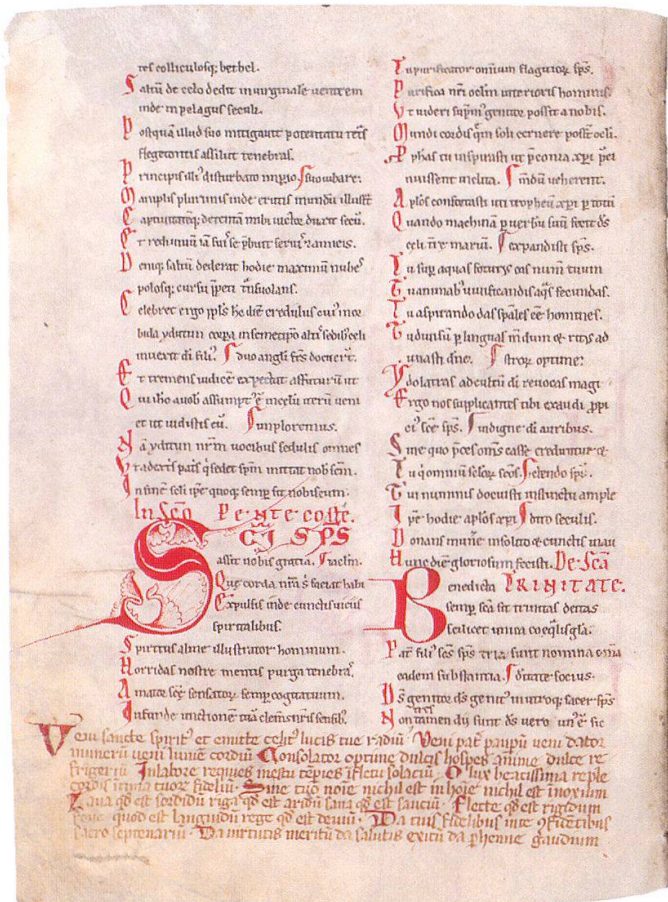 tes colliculosq; bethel.
Saltũ de celo dedit in virginalẽ ventrem
inde in pelagus seculi.
Postquã illud suo mitigavit potentatu
flegetontis assiluit tenebras.
Principis illi disturbato impio
Manipulis plurimis inde erutis mundũ illustrat
Captivitatẽq; detentã
Et redivivũ iã
Deniq; saltũ dederat hodie maximũ nubes
polosq; cursu transvolans.
Celebret ergo ppls hc diẽ credulus cui mor
bida corpa in semetipso altis sedib; celi
invexit di fili
Et tremens iudicẽ expectat affuturũ ut
Qui iho a vob assumpt
et ut vidistis eũ. Imploremus.
Nã nrm vocibus sedulis omnes
Ut
In fine seli ipe quoq; semp sit nobiscum.
In Sco Pentecoste.
Sci sps
assit nobis gratia.
Que corda nra s faciat habi
Expulsis inde cunctis viciis
spiritalibus.
Spiritus alme illustrator hominum.
Horridas nostre mentis purga tenebras.
Amator sce sensatorũ semp cogitatuum.
Infunde unctionem tuã clemens nris sensib;.
Tu purificator omnium flagitiorũ sps.
Purifica nri oclm interioris hominis.
Ut videri suprm genitor possit a nobis.
Mundi cordis quem soli cernere possnt ocli.
Pphas tu inspirasti ut pconia xpi
nuissent inclita. mdũ veherent.
Aplos confortasti uti tropheũ xpi p totũ
Quando machinã p verbũ suũ fecit ds
celi tre mariũ. expandisti sps.
Tu sup aquas foturus eas numen tuum
Tu animab; vivificandis aqs fecundas.
Tu aspirando das spales ee homines.
Tu divisũ p linguas mdum et ritus ad
unasti dne. strorũ optime:
Ydolatras ad cultũ di revocas magi
Ergo nos supplicantes tibi exaudi ppi
ci sce sps. indigne di auribus.
Sine quo pces oms casse creduntur et
Tu q omniũ selorũ scos.
Tui numinis docuisti instinctu ample
Ipe hodie aplos xpi seculis.
Donans munere insolito et cunctis inau
Hunc diẽ gloriosum fecisti. De Sca
Benedicta TRINITATE.
semp sca sit trinitas deitas
scilicet unita coeqlis gla.
Pat fili scs sps tria sunt nomina oma
eadem substantia.
Ds genitor ds genit in utroq; sacer sps
Non tres tamen dii sunt ds verus
Veni sancte spirit et emitte celit lucis tue radiũ. Veni pat paupũ veni dator
munerũ veni lumẽ cordiũ Consolator optime dulcis hospes anime dulce re
frigeriũ In labore requies in estu tẽpies in fletu solaciũ. O lux beatissima reple
cordis intima tuorũ fideliũ. Sine tuo noie nichil est in hoie nichil est inoxium
Lava qd est sordidũ riga qd est aridũ sana qd est sauciũ. Flecte qd est rigidum
fove quod est languidũ rege qd est deviũ. Da tuis fidelibus in te 9fidentibus
sacro septenariũ. Da virtutis meritũ da salutis exitũ da phenne gaudium